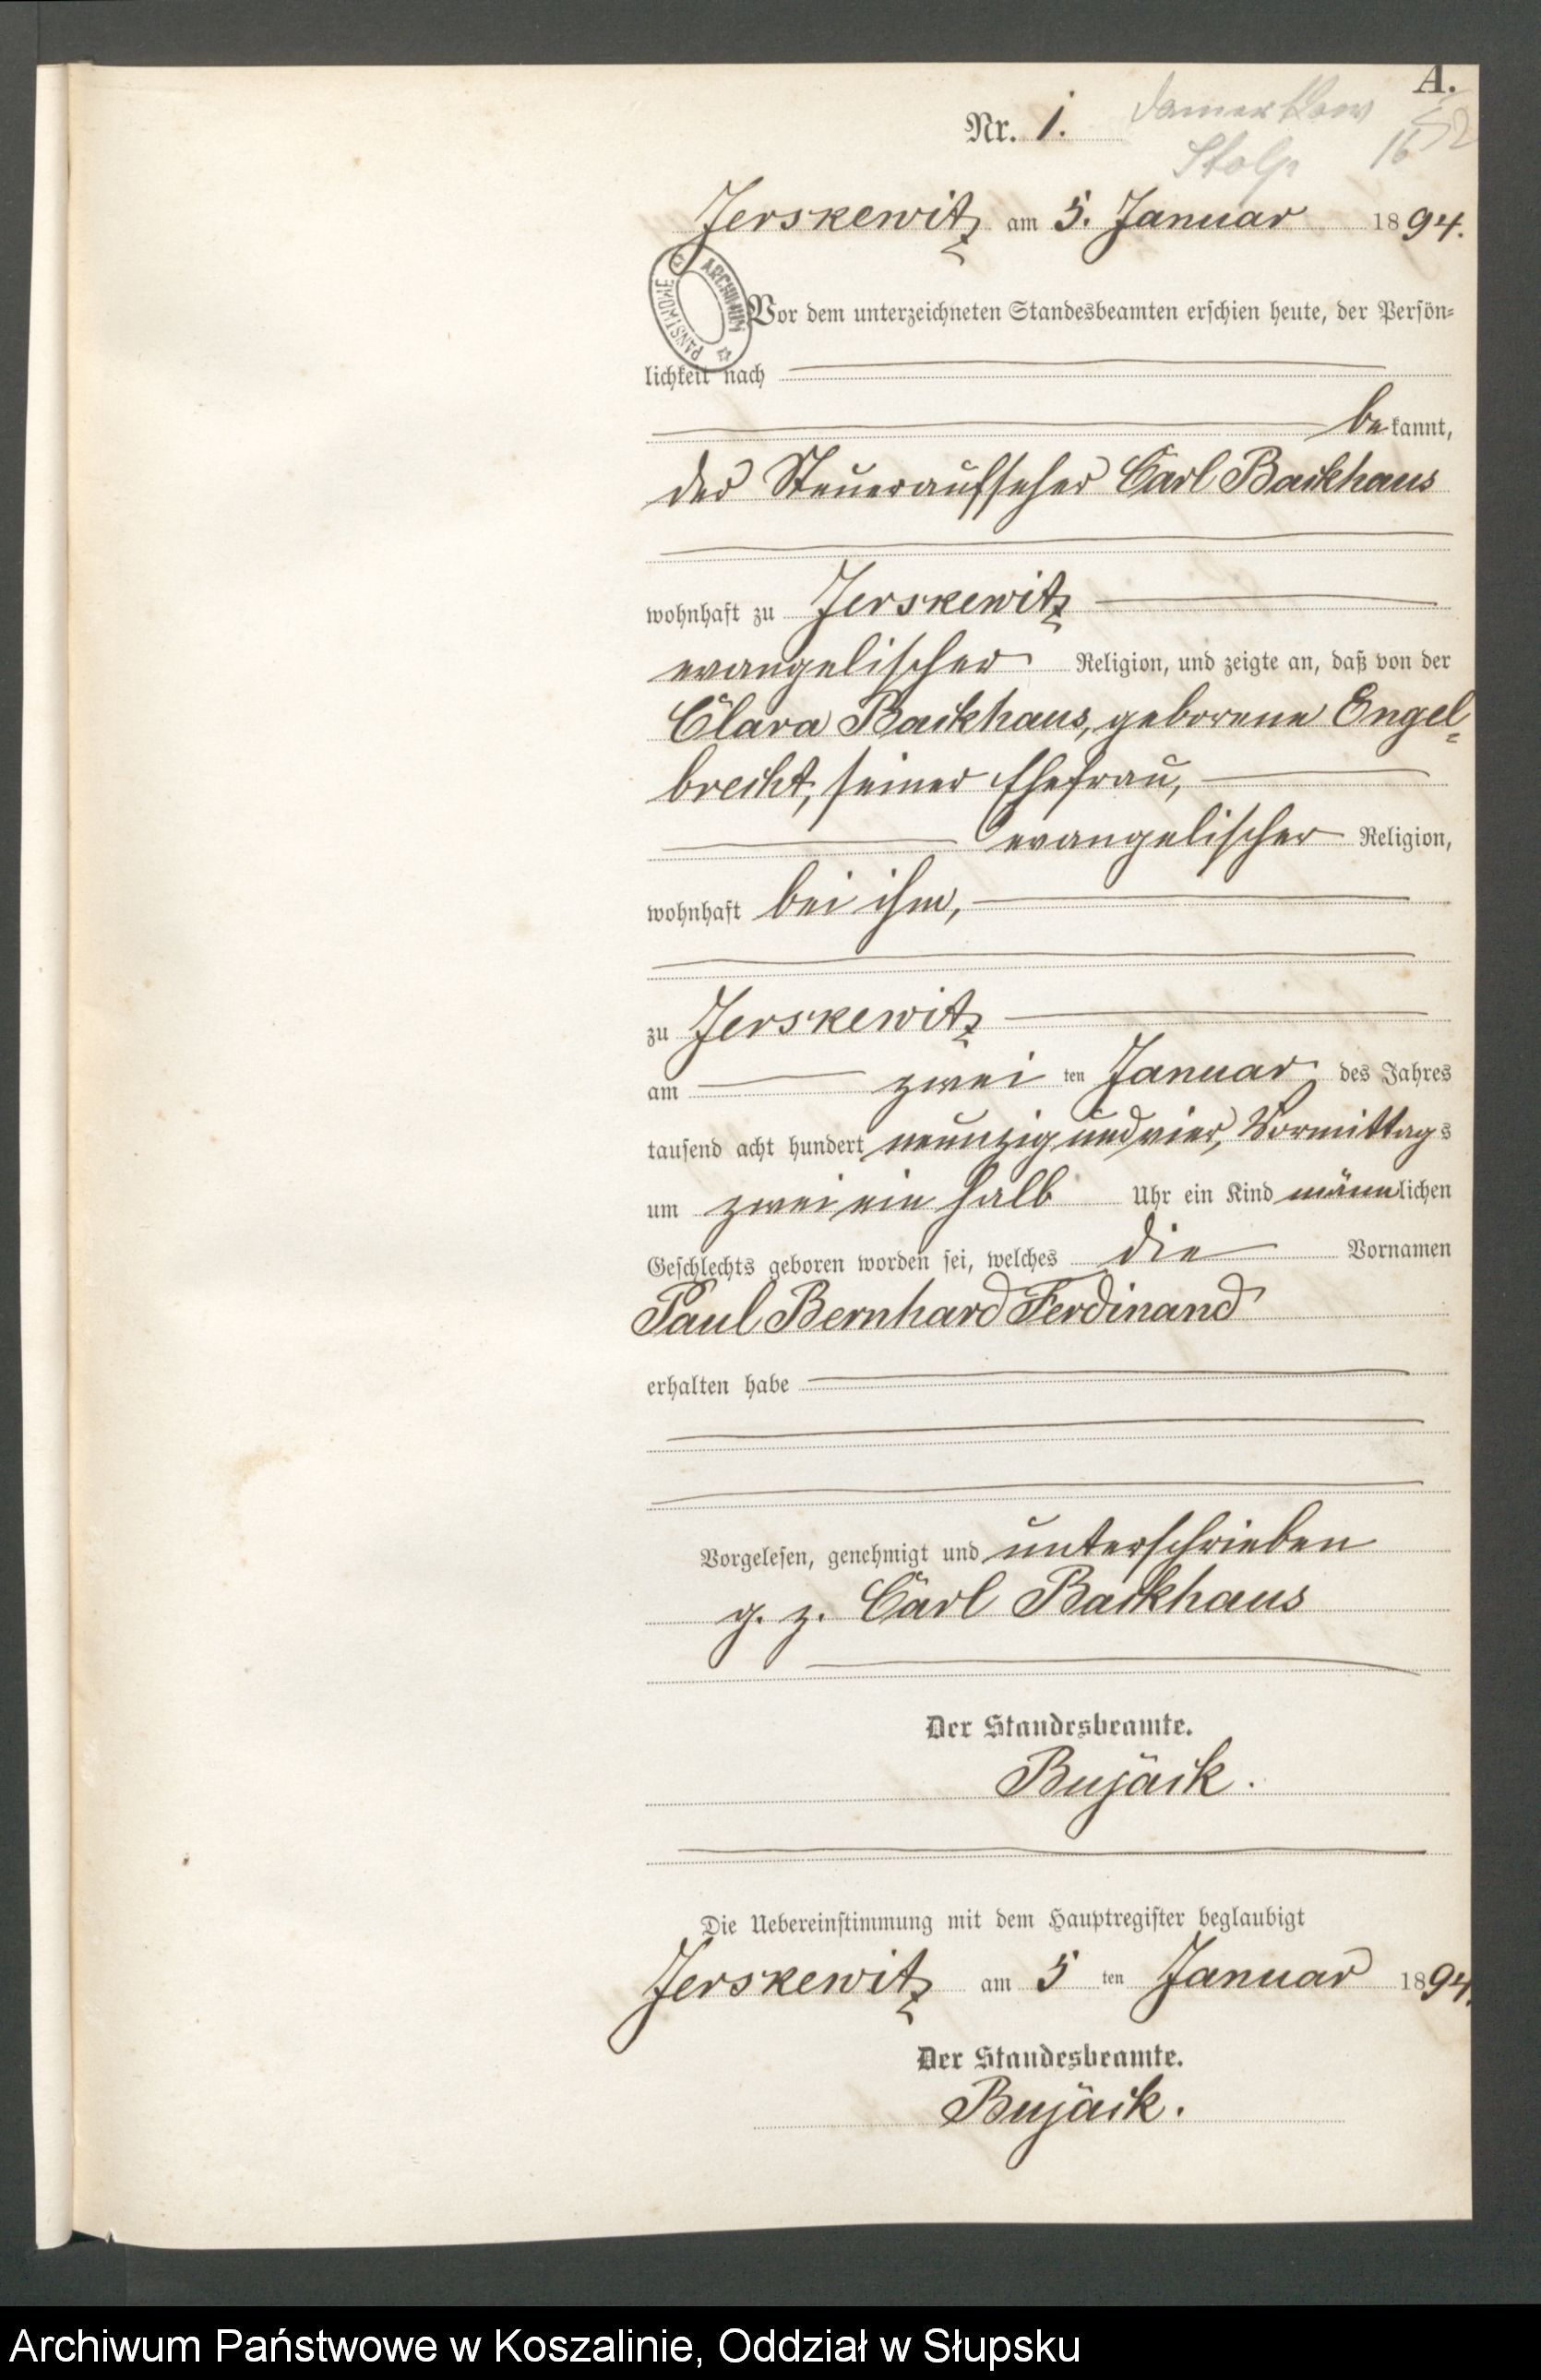 A.
Nr. 1.
Damerkow
Stolp 16
Jerskewitz am 5. Januar 1894.
ARCHIWUM PAŃSTWOWE
Vor dem unterzeichneten Standesbeamten erschien heute, der Persön-
lichkeit nach
bekannt,
der Steueraufseher Carl Backhaus
wohnhaft zu Jerskewitz
evangelischer Religion, und zeigte an, daß von der
Clara Backhaus, geborene Engel-
brecht, seiner Ehefrau,
evangelischer Religion,
wohnhaft bei ihm,
zu Jerskewitz
am zweiten Januar des Jahres
tausend acht hundert neunzig und vier, Vormittags
um zwei ein halb Uhr ein Kind männlichen
Geschlechts geboren worden sei, welches die Vornamen
Paul Bernhard Ferdinand
erhalten habe
Vorgelesen, genehmigt und unterschrieben
g. z. Carl Backhaus
Der Standesbeamte.
Bujäck.
Die Uebereinstimmung mit dem Hauptregister beglaubigt
Jerskewitz am 5 ten Januar 1894.
Der Standesbeamte.
Bujäck.
Archiwum Państwowe w Koszalinie, Oddział w Słupsku